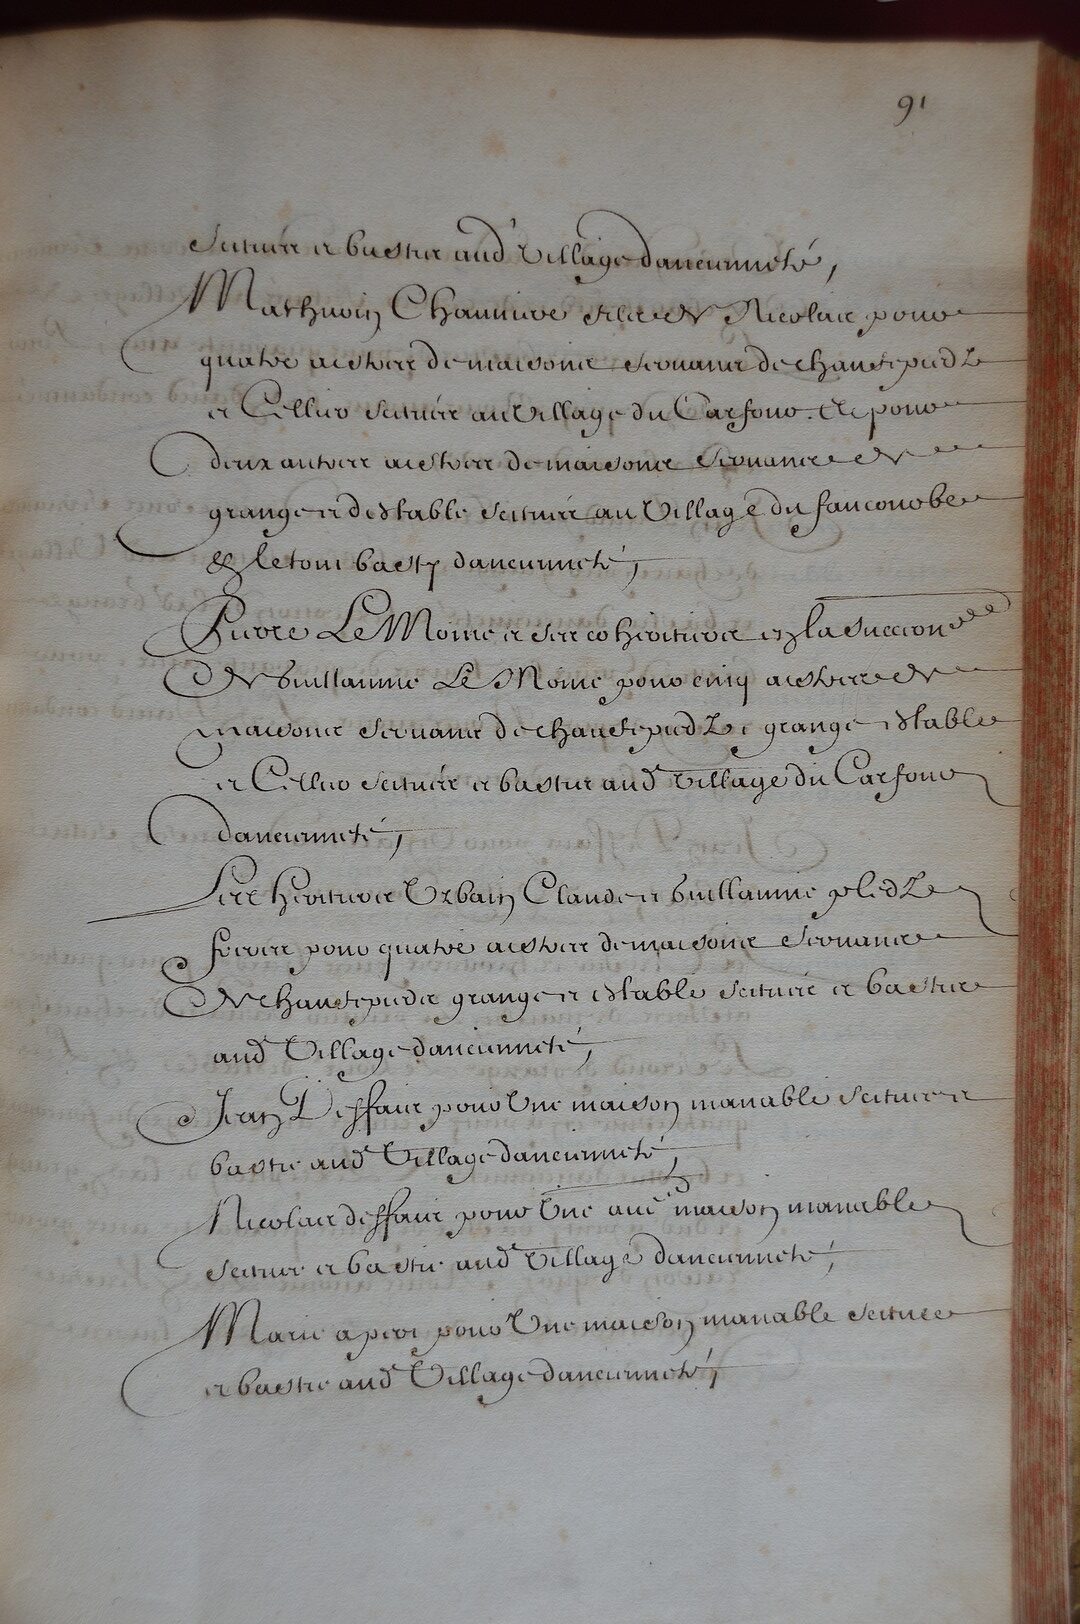 91
Scituez et bastiz aud' Village d'ancienneté,
Mathurin Chauniere filz de Nicolas pour
quatre aistres de maisons servans de chaufepiedz
et Cellier Scituez au Village du Carfour. Et pour
deux autres aistres de maisons servans de
grange et d'estable Scituez au Village du
& le tout basty d'ancienneté,
Pierre Le Moine et ses coheritiers en la succion
de Guillaume Le Moine pour cinq aistres de
maisons servans de chaufepiedz grange estable
et Cellier Scituez et bastiz aud Village du Carfour
d'ancienneté,
Les heritiers Urbain Claude et Guillaume
freres pour quatre aistres de maisons servans
de chaufepieds grange et estable scituez et bastiz
aud Village d'ancienneté,
Jean Deffaix pour Une maison manable Scituee et
bastie aud Village d'ancienneté,
Nicolas deffaix pour Une aue maison manable
Scituee et bastie aud Village d'ancienneté,
Marie pour Une maison manable Scituee
et bastie aud Village d'ancienneté,